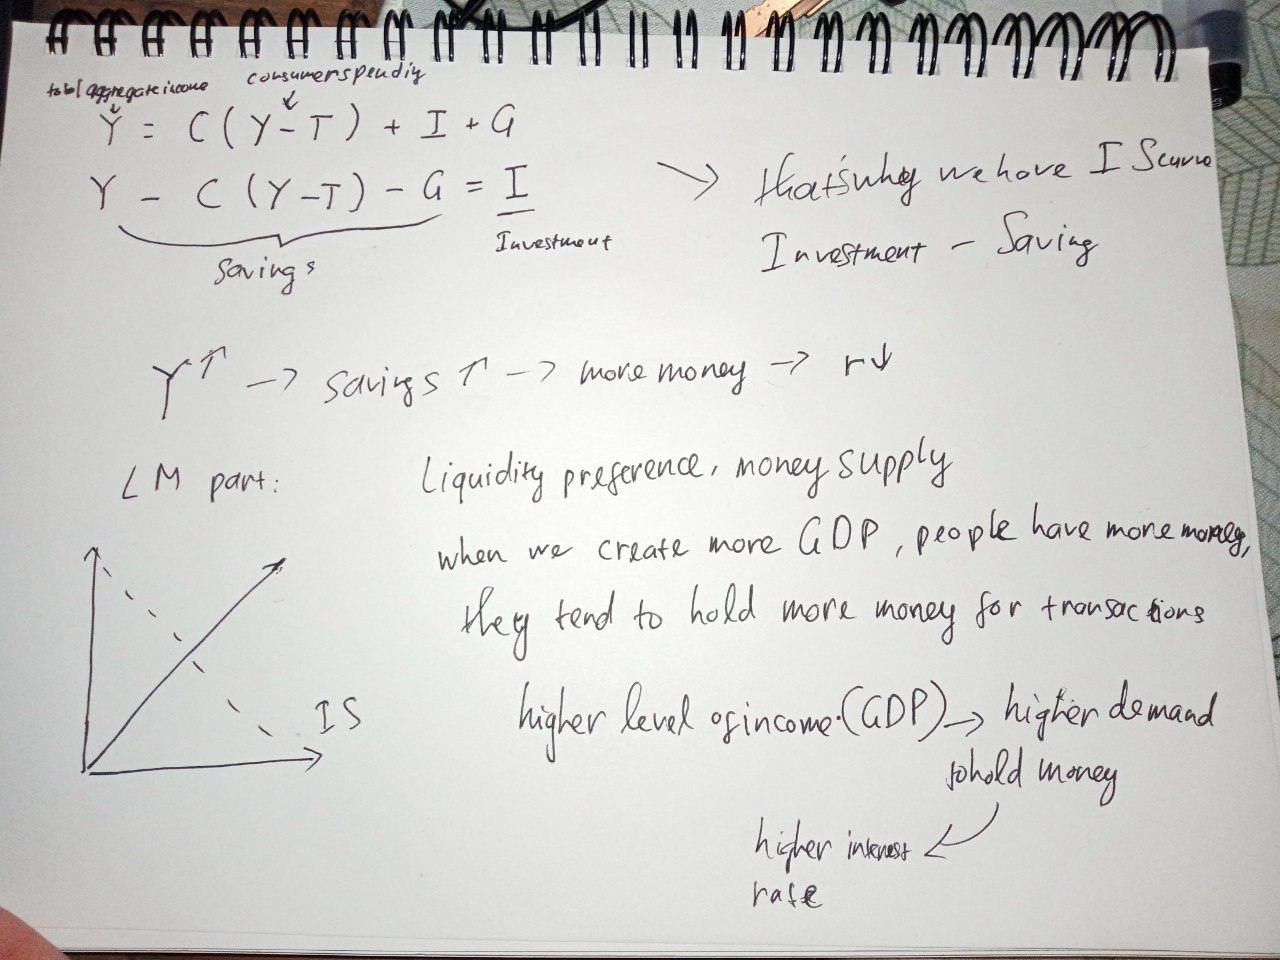 total aggregate income
consumer spending
Y = C(Y-T) + I + G
Y - C(Y-T) - G = I
Savings
Investment
that's why we have IS curve
Investment - Saving
Y↑ -> savings↑ -> more money -> r↓
LM part:
Liquidity preference, money supply
when we create more GDP, people have more money,
they tend to hold more money for transactions
IS
higher level of income (GDP) -> higher demand
to hold money
higher interest
rate